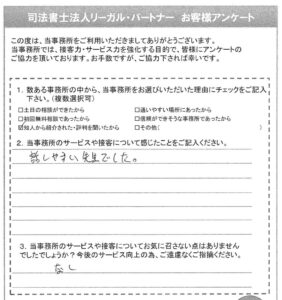 司法書士法人リーガル・パートナー お客様アンケート
この度は、当事務所をご利用いただきましてありがとうございます。
当事務所では、接客力・サービス力を強化する目的で、皆様にアンケートの
ご協力を頂いております。お手数ですが、ご協力下されば幸いです。
1. 数ある事務所の中から、当事務所をお選びいただいた理由にチェックをご記入
下さい。（複数選択可）
□土日の相談ができたから □通いやすい場所にあったから
□初回無料相談であったから □信頼ができそうな事務所であったから
☑知人から紹介された・評判を聞いたから □その他（ ）
2. 当事務所のサービスや接客について感じたことをご記入ください。
話しやすい先生でした。
3. 当事務所のサービスや接客についてお気に召さない点はありません
でしたでしょうか？今後のサービス向上の為、ご遠慮なくご指摘ください。
なし